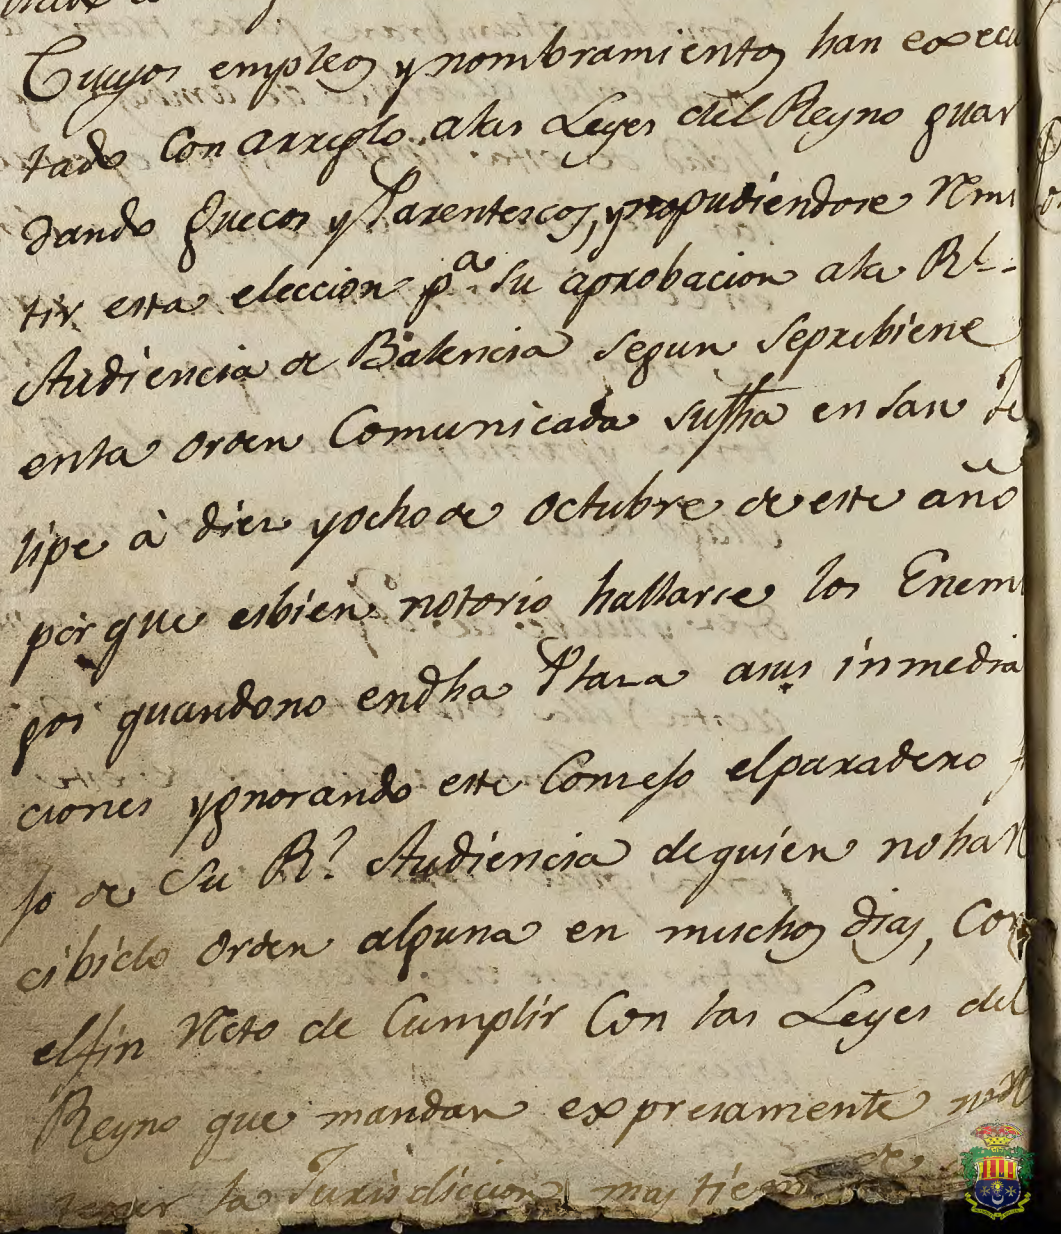 Cuyos empleos y nombramientos han execu
tado Con arreglo alas Leyes del Reyno guar
dando guecos y Parentescos, y no pudiendose Remi
tir esta eleccion p.ª su aprobacion ala Rl.
Audiencia de Balencia segun seprebiene
enla orden Comunicada sufha en San Fe
lipe à diez yocho de octubre de este año
por que esbien notorio hallarse los Enemi
gos quandono endha Plaza asus inmedia
ciones ygnorando este Consejo elparadero
so de Su Rl Audiencia dequien noha re
cibido orden alguna en muchos dias, Con
elfin Reto de Cumplir Con las Leyes del
Reyno que mandan expresamente no
tener la Jurisdiccion mas tiem de